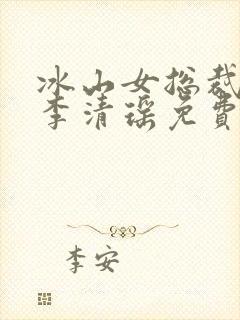 冰山女总裁
李清瑶免費
李安